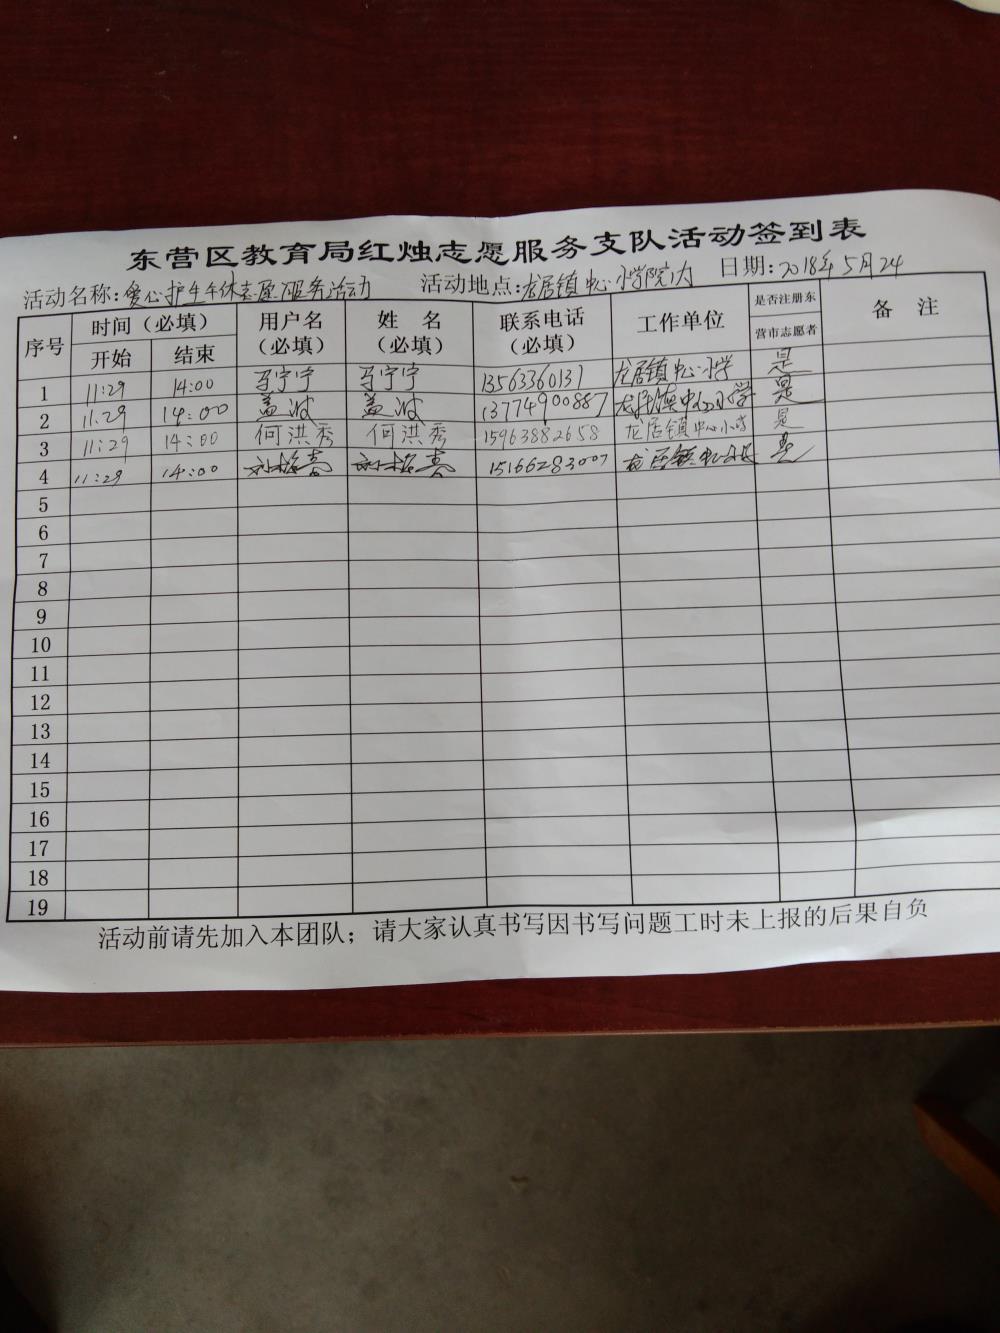 东营区教育局红烛志愿服务支队活动签到表
活动名称:爱心护生午休志愿服务活动 活动地点:龙居镇中心小学院内 日期:2018年5月24
序号 时间（必填） 用户名（必填） 姓 名（必填） 联系电话（必填） 工作单位 是否注册东营市志愿者 备 注
开始 结束
1 11:29 14:00 马宁宁 马宁宁 13563360131 龙居镇中心小学 是
2 11:29 14:00 盖波 盖波 13774900887 龙居镇中心小学 是
3 11:29 14:00 何洪秀 何洪秀 15963882658 龙居镇中心小学 是
4 11:29 14:00 15166283007 龙居镇中心小学 是
5
6
7
8
9
10
11
12
13
14
15
16
17
18
19
活动前请先加入本团队；请大家认真书写因书写问题工时未上报的后果自负